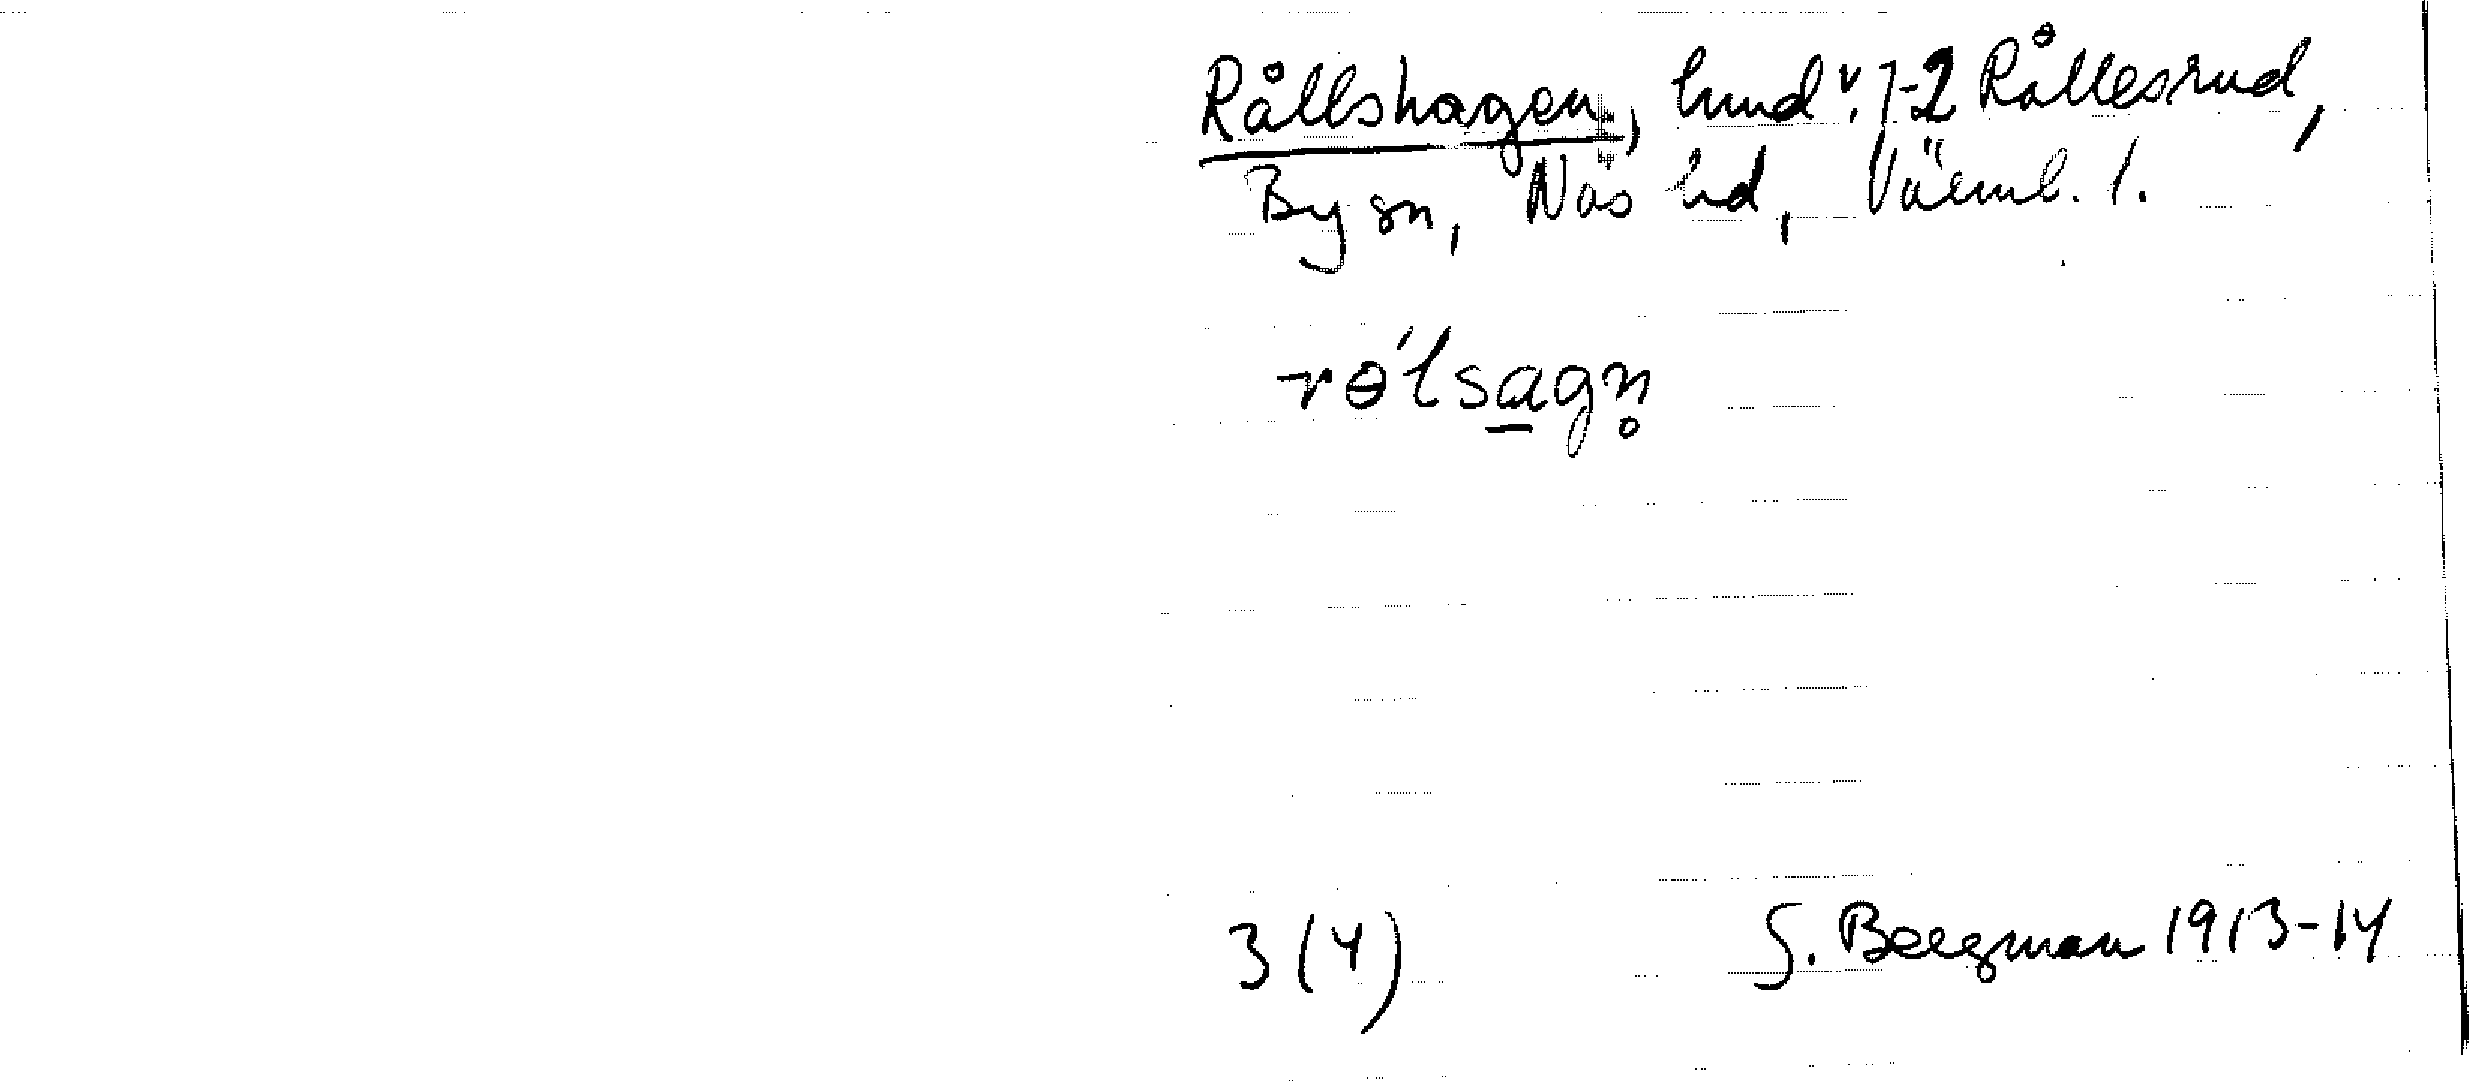 Rållshagen, lund v. 1-2 Rållesrud,
By sn, Näs hd, Värml. l.
rɵ́lsagn̥
3 (4) S. Bergman 1913-14